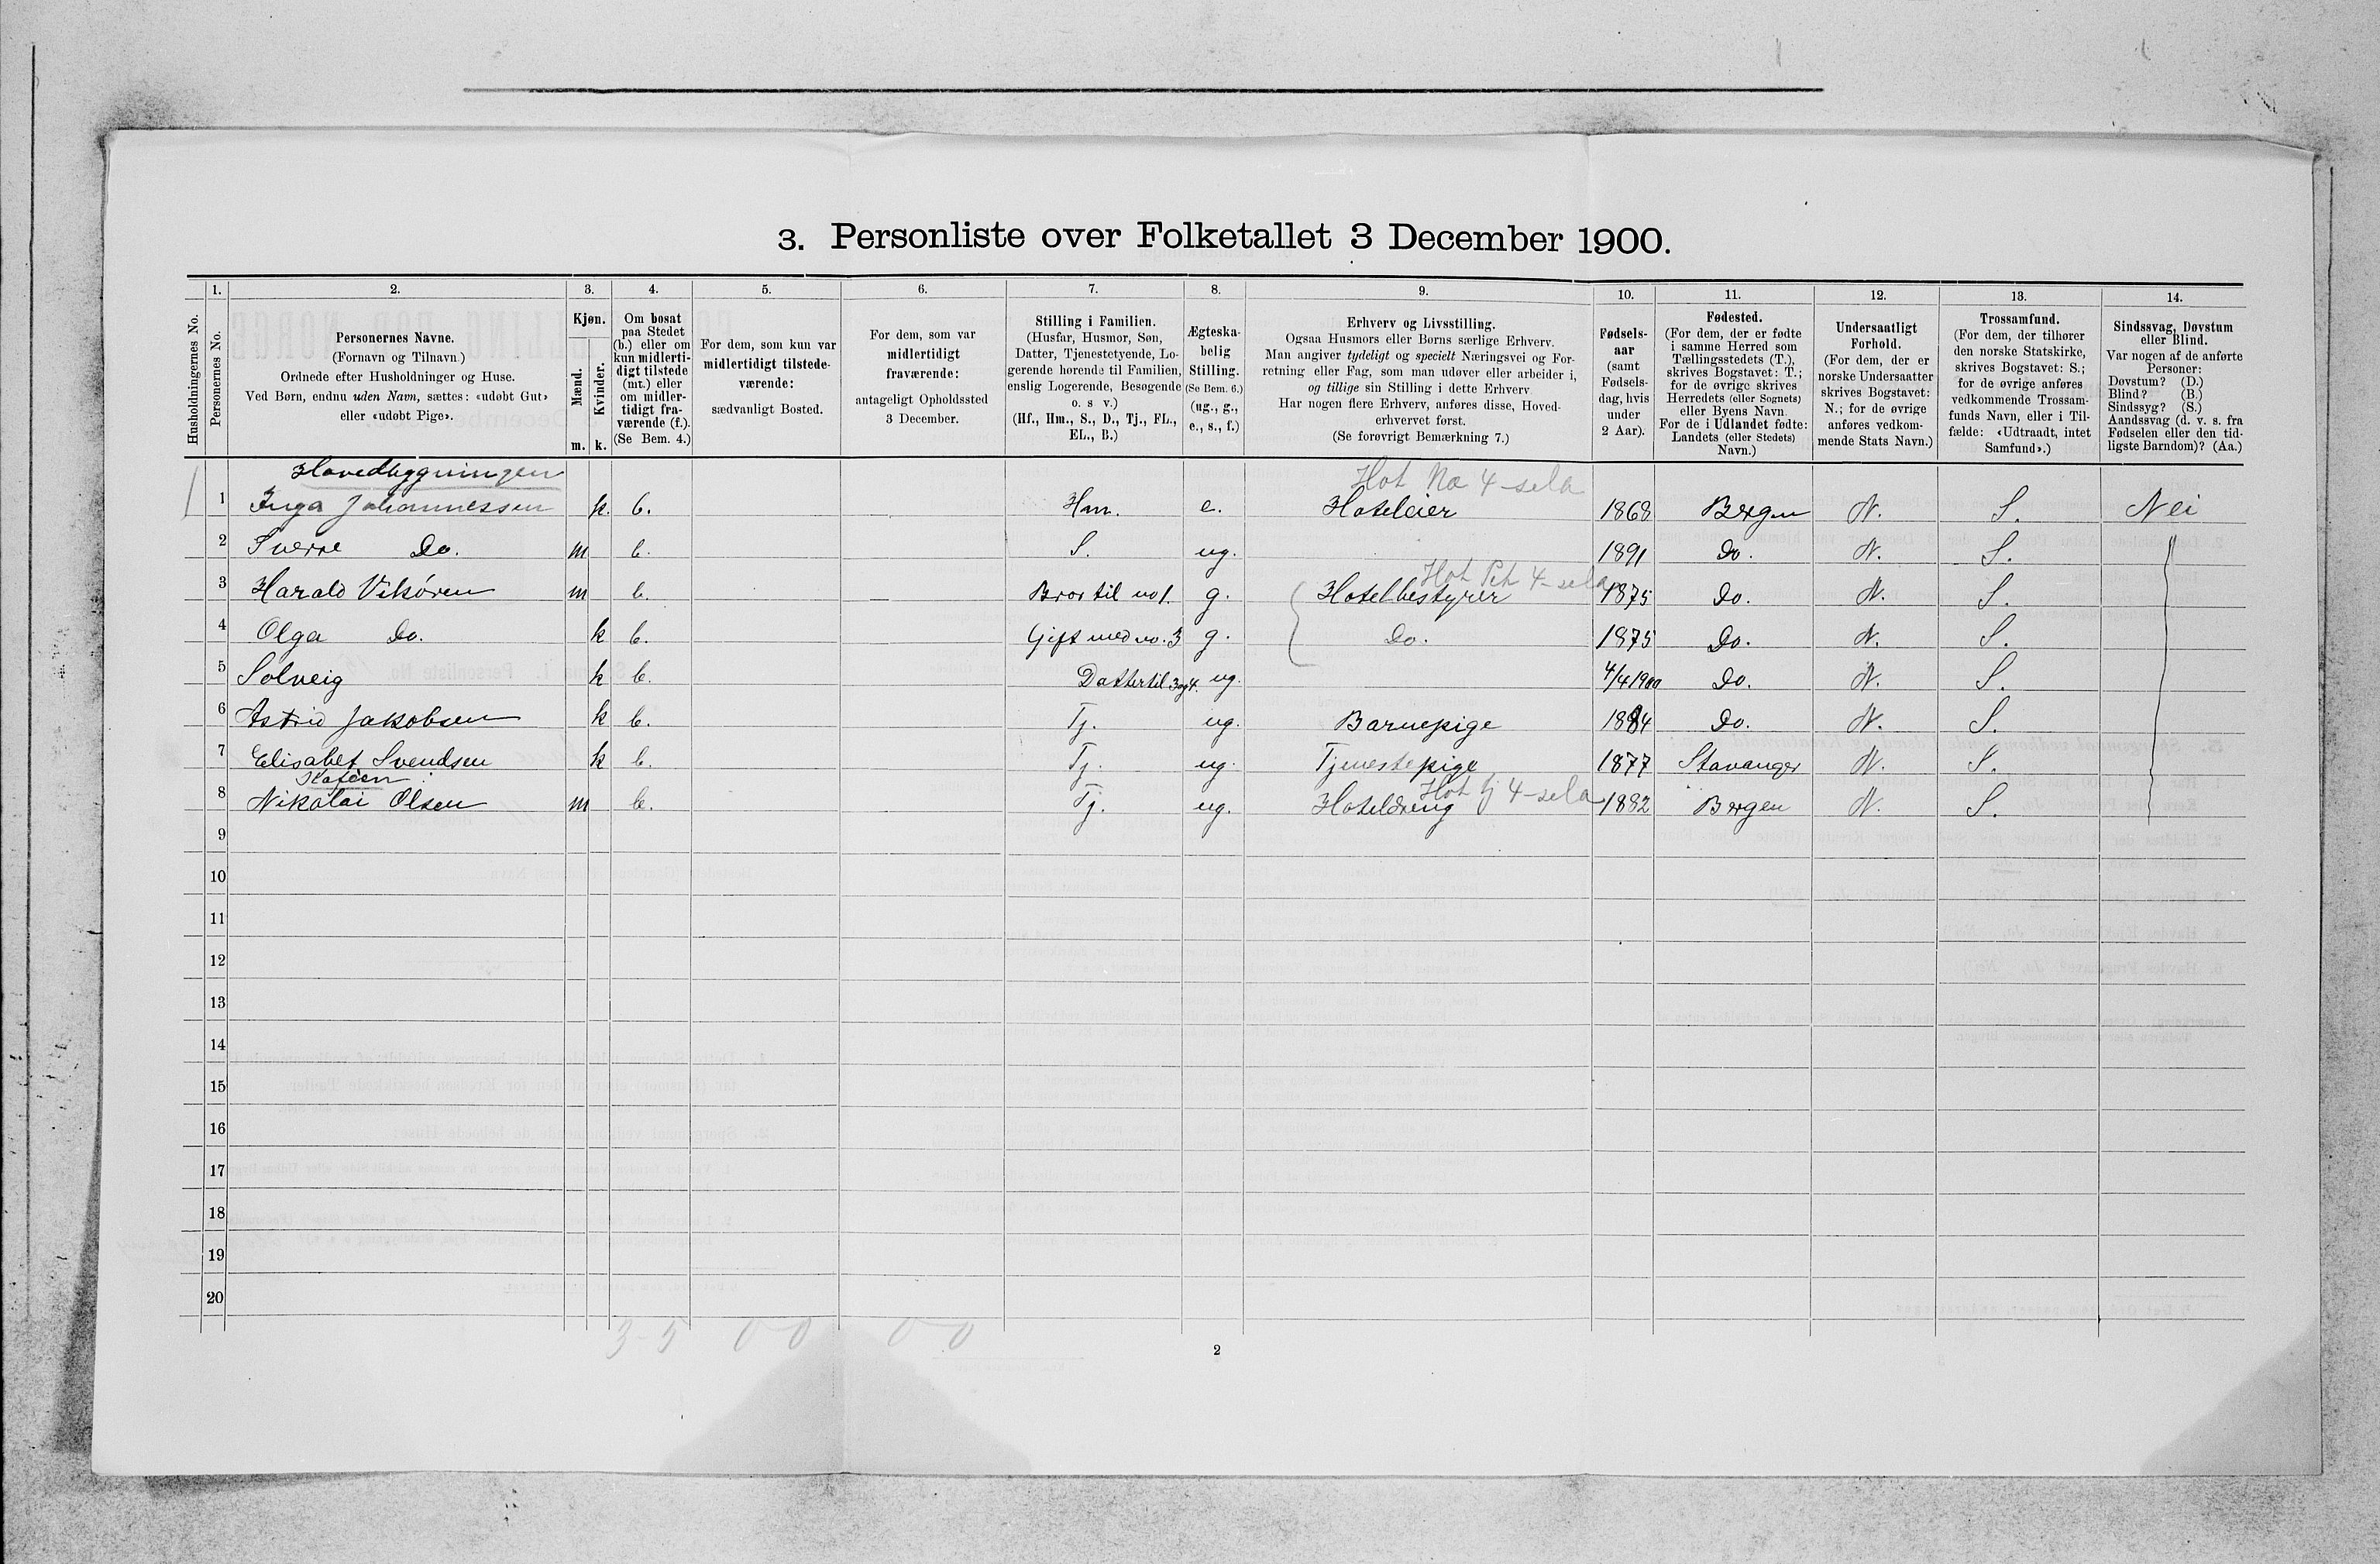 3. Personliste over Folketallet 3 December 1900.
1. 2. 3. 4. 5. 6. 7. 8. 9. 10. 11. 12. 13. 14.
Husholdningernes No.
Personernes No.
Personernes Navne.
(Fornavn og Tilnavn.)
Ordnede efter Husholdninger og Huse.
Ved Børn, endnu uden Navn, sættes: «udøbt Gut»
eller «udøbt Pige».
Kjøn.
Mænd.
Kvinder.
m. k.
Om bosat
paa Stedet
(b.) eller om
kun midlerti-
digt tilstede
(mt.) eller
om midler-
tidigt fra-
værende (f.).
(Se Bem. 4.)
For dem, som kun var
midlertidigt tilstede-
værende:
sædvanligt Bosted.
For dem, som var
midlertidigt
fraværende:
antageligt Opholdssted
3 December.
Stilling i Familien.
(Husfar, Husmor, Søn,
Datter, Tjenestetyende, Lo-
gerende hørende til Familien,
enslig Logerende, Besøgende
o. s v.)
(Hf., Hm., S., D., Tj., FL.,
EL., B.)
Ægteska-
belig
Stilling.
(Se Bem. 6.)
(ug., g.,
e., s., f.)
Erhverv og Livsstilling.
Ogsaa Husmors eller Børns særlige Erhverv.
Man angiver tydeligt og specielt Næringsvei og For-
retning eller Fag, som man udøver eller arbeider i,
og tillige sin Stilling i dette Erhverv.
Har nogen flere Erhverv, anføres disse, Hoved-
erhvervet først.
(Se forøvrigt Bemærkning 7.)
Fødsels-
aar
(samt
Fødsels-
dag, hvis
under
2 Aar).
Fødested.
(For dem, der er fødte
i samme Herred som
Tællingsstedets (T.),
skrives Bogstavet: T.;
for de øvrige skrives
Herredets (eller Sognets)
eller Byens Navn.
For de i Udlandet fødte:
Landets (eller Stedets)
Navn.)
Undersaatligt
Forhold.
(For dem, der er
norske Undersaatter
skrives Bogstavet:
N.; for de øvrige
anføres vedkom-
mende Stats Navn.)
Trossamfund.
(For dem, der tilhører
den norske Statskirke,
skrives Bogstavet: S.;
for de øvrige anføres
vedkommende Trossam-
funds Navn, eller i Til-
fælde: «Udtraadt, intet
Samfund».)
Sindssvag, Døvstum
eller Blind.
Var nogen af de anførte
Personer:
Døvstum? (D.)
Blind? (B.)
Sindssyg? (S.)
Aandssvag (d. v. s. fra
Fødselen eller den tid-
ligste Barndom)? (Aa.)
Hovedbygningen Hot Na 4-sela
1 Inga Johannessen k. b. Hm. e. Hoteleier 1868 Bergen N. S. Nei
2 Sverre Do. m b. S. ug. 1891 Do. N. S.
Hot 4-sela
3 Harald Vikören m b. Bror til no 1. g. Hotelbestyrer 1875 Do. N. S.
4 Olga Do. k b. Gift med no. 3 g. Do. 1875 Do. N. S.
5 Solveig k b. Datter til 3 og 4. ug. 4/4 1900 Do. N. S.
6 Astrid Jakobsen k b. Tj. ug. Barnepige 1884 Do. N. S.
7 Elisabet Svendsen k b. Tj. ug. Tjenestepige 1877 Stavanger N. S.
Hot tj 4-sela
8 Nikolai Olsen m b. Tj. ug. Hoteldreng 1882 Bergen N. S.
9
10
11
12
13
14
15
16
17
18
19
20
3-5 0 0 0 0
2